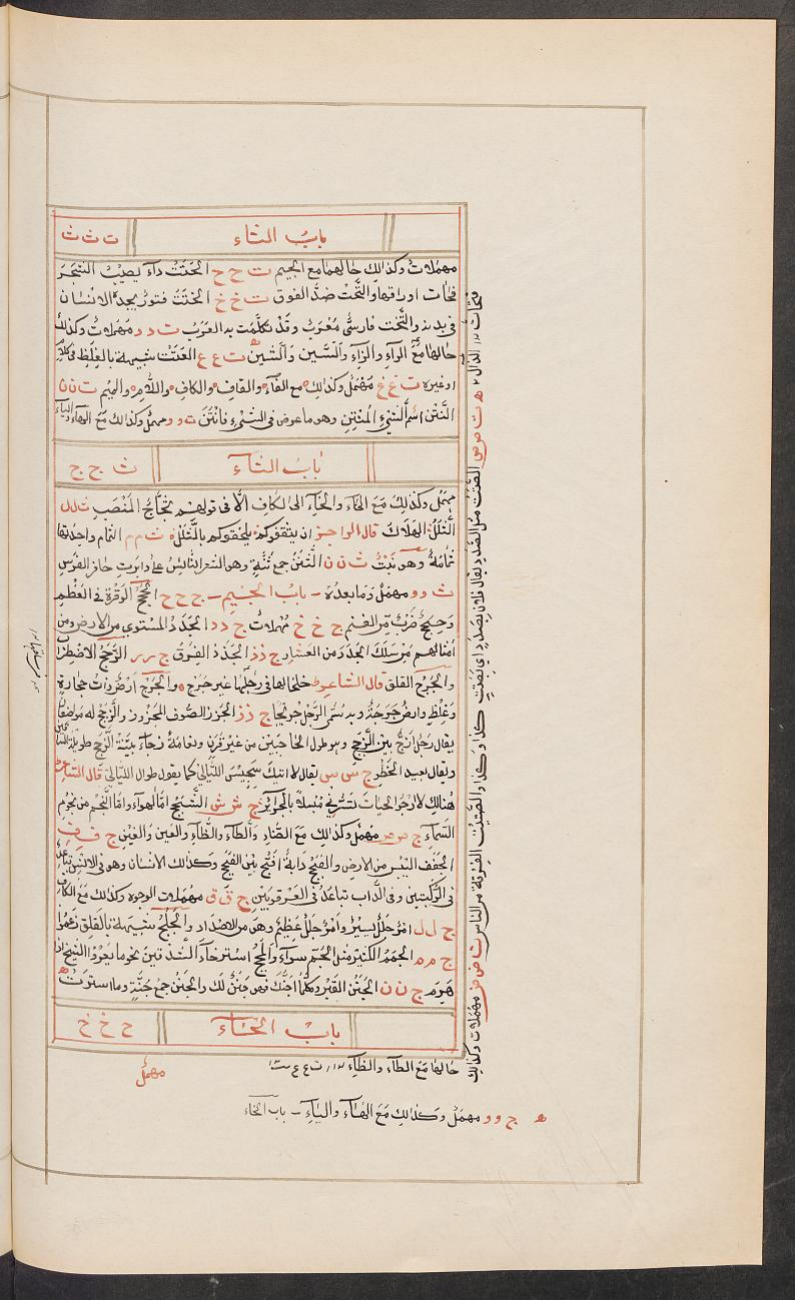 باب التاء ت ث ث
مهملات وكذلك حالهما مع الجيم ت ح ح الحتت داء يصيب الشجر
فحات اوراقها والتحت ضد الفوق ت خ خ الختت فتور يجده الانسان
في بدنه والتخت فارسي معرب وقد تكلمت به العرب ت د د مهملات وكذلك
حالها مع الراء والزاء والسين والشين ت ع ع العتت شبيهة بالغلظ في كلام
او غيره ت غ غ مهمل وكذلك مع الفاء والقاف والكاف واللام والميم ت ن ن
النتن اسم الشيء المنتن وهو ما عرض في الشيء فانتن ت و و مهمل وكذلك مع الهاء والياء
باب الثاء ث ج ج
مهمل وكذلك مع الحاء والخاء الى الكاف الا في قولهم ثجاج ث ل ل
الثلل الهلاك قال الراجز ان يثقفوكم يلحقوكم بالثلل ث م م الثمام واحدتها
ثمامة وهو نبت ث ن ن الثنن جمع ثنة وهو الشعر النابس على دابرة حافر الفرس
ث و و مهمل وما بعده باب الجيم ج ح ح الوقرة في العظم
ضرب من الغنم ج خ خ مهملات ج د د الجدد المستوي من الارض ومن
امثالهم من سلك الجدد من العثار ج ذ ذ الجذذ الفرق ج ر ر الرجج الاضطراب
والجرج القلق قال الشاعر خلخالها في رجلها غير جرج والجرج ارض ذات حجارة
وغلظ وارض جرجة وبه سمي الرجل جريجا ج ز ز الجزز الصوف المجزوز والزجج له مواضع
يقال رجل ازج بين الزجج وهو طول الحاجبين من غير قرن ونعامة زجاء بينة الزجج طويلة
ويقال لبعيد الخطو ج س س يقال لا آتيك سجيس الليالي كما يقول طوال الليالي قال الشاعر
هنالك لا ارجو الحياة تسرني مبسلا بالجرائر ج ش ش الشجج اما الهواء واما النجم من نجوم
السماء ج ص ص مهمل وكذلك مع الضاد والطاء والظاء والعين والغين ج ف ف
الجفف اليبس من الارض والفجج دابة افج بين الفجج وكذلك الانسان وهو في الانس تباعد
في الركبتين وفي الداب تباعد في العرقوبين ج ق ق مهملات الوجوه وكذلك مع الكاف
ج ل ل امر جلل يسير وامر جلل عظيم وهو من الاضداد والجلج شبيهة بالقلق زعموا
ج م م الجمم الكثير مثل الجم سواء والمجج استرخاء الشدقين نحو ما يعرو الشيخ اذا
هرم ج ن ن الجنن القبر وكلما اجنك فهو جنن لك والجنن جمع جنة وما استترت به
باب الحاء ح خ خ
مهمل
حالها مع الطاء والظاء ت ع ع
ج و و مهمل وكذلك مع الهاء والياء باب الحاء
فحات الدال ت ص ص الصتت مثل الصدد ويقال فلان بصدد اي بصتت كذا وكذا والصتيت الفرقة من الناس ت ض ض مهملات وكذلك